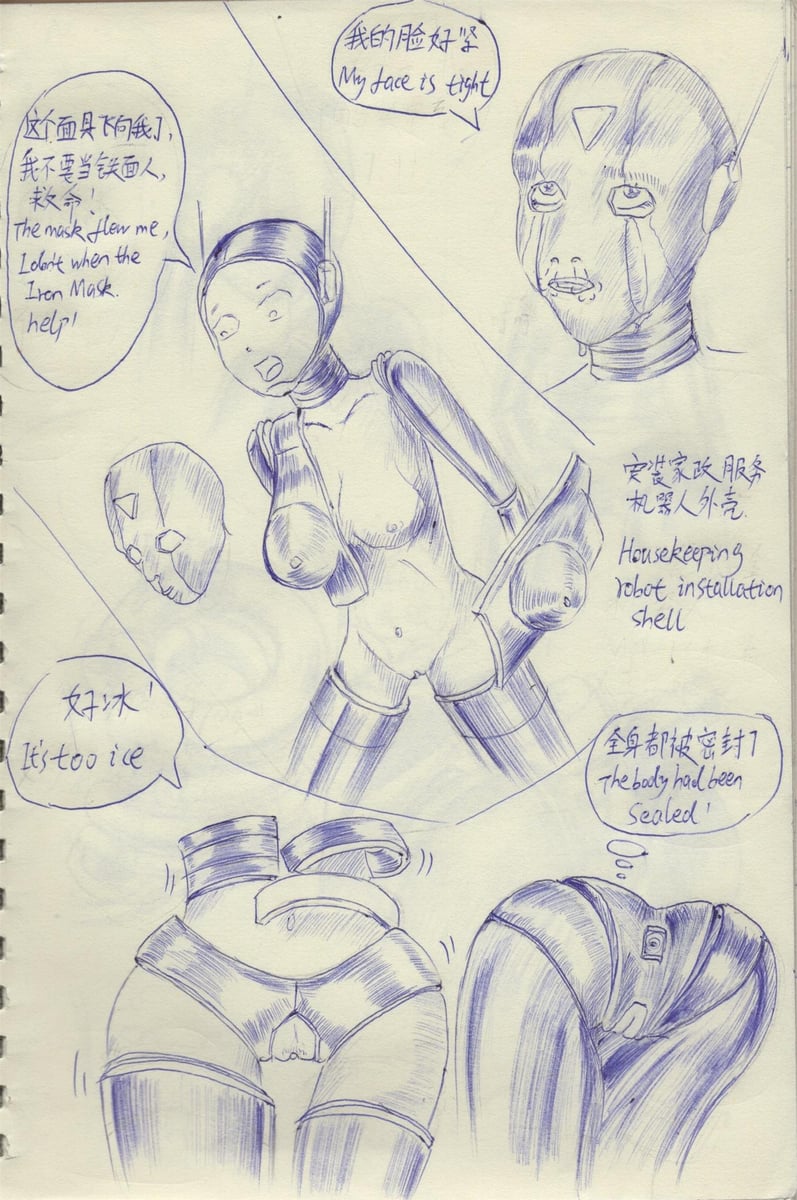 我的脸好紧
My face is tight
这个面具飞向我了,
我不要当铁面人,
救命!
The mask flew me,
I don't when the
Iron Mask.
help!
安装家政服务
机器人外壳.
Housekeeping
robot installation
shell
好冰!
It's too ice
全身都被密封了
The body had been
Sealed!